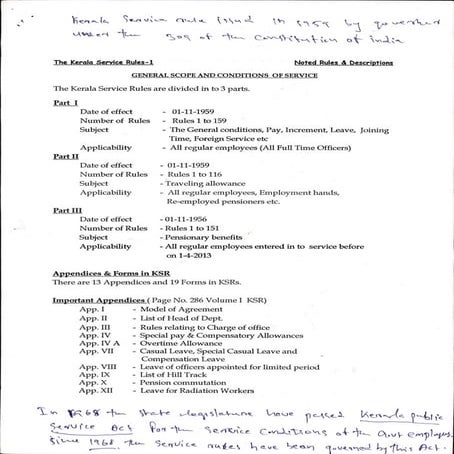 Kerala Service rule issued in 1959 by governer
under the 309 of the Constitution of india
The Kerala Service Rules-1 Noted Rules & Descriptions
GENERAL SCOPE AND CONDITIONS OF SERVICE
The Kerala Service Rules are divided in to 3 parts.
Part I
Date of effect - 01-11-1959
Number of Rules - Rules 1 to 159
Subject - The General conditions, Pay, Increment, Leave, Joining
Time, Foreign Service etc
Applicability - All regular employees (All Full Time Officers)
Part II
Date of effect - 01-11-1959
Number of Rules - Rules 1 to 116
Subject - Traveling allowance
Applicability - All regular employees, Employment hands,
Re-employed pensioners etc.
Part III
Date of effect - 01-11-1956
Number of Rules - Rules 1 to 151
Subject - Pensionary benefits
Applicability - All regular employees entered in to service before
on 1-4-2013
Appendices & Forms in KSR
There are 13 Appendices and 19 Forms in KSRs.
Important Appendices ( Page No. 286 Volume 1 KSR)
App. I - Model of Agreement
App. II - List of Head of Dept.
App. III - Rules relating to Charge of office
App. IV - Special pay & Compensatory Allowances
App. IV A - Overtime Allowance
App. VII - Casual Leave, Special Casual Leave and
Compensation Leave
App. VIII - Leave of officers appointed for limited period
App. IX - List of Hill Track
App. X - Pension commutation
App. XII - Leave for Radiation Workers
In 1968 the state legislature have passed Kerala public
Service Act for the service conditions of the Govt employees.
Since 1968 the service rules have been governed by this Act.